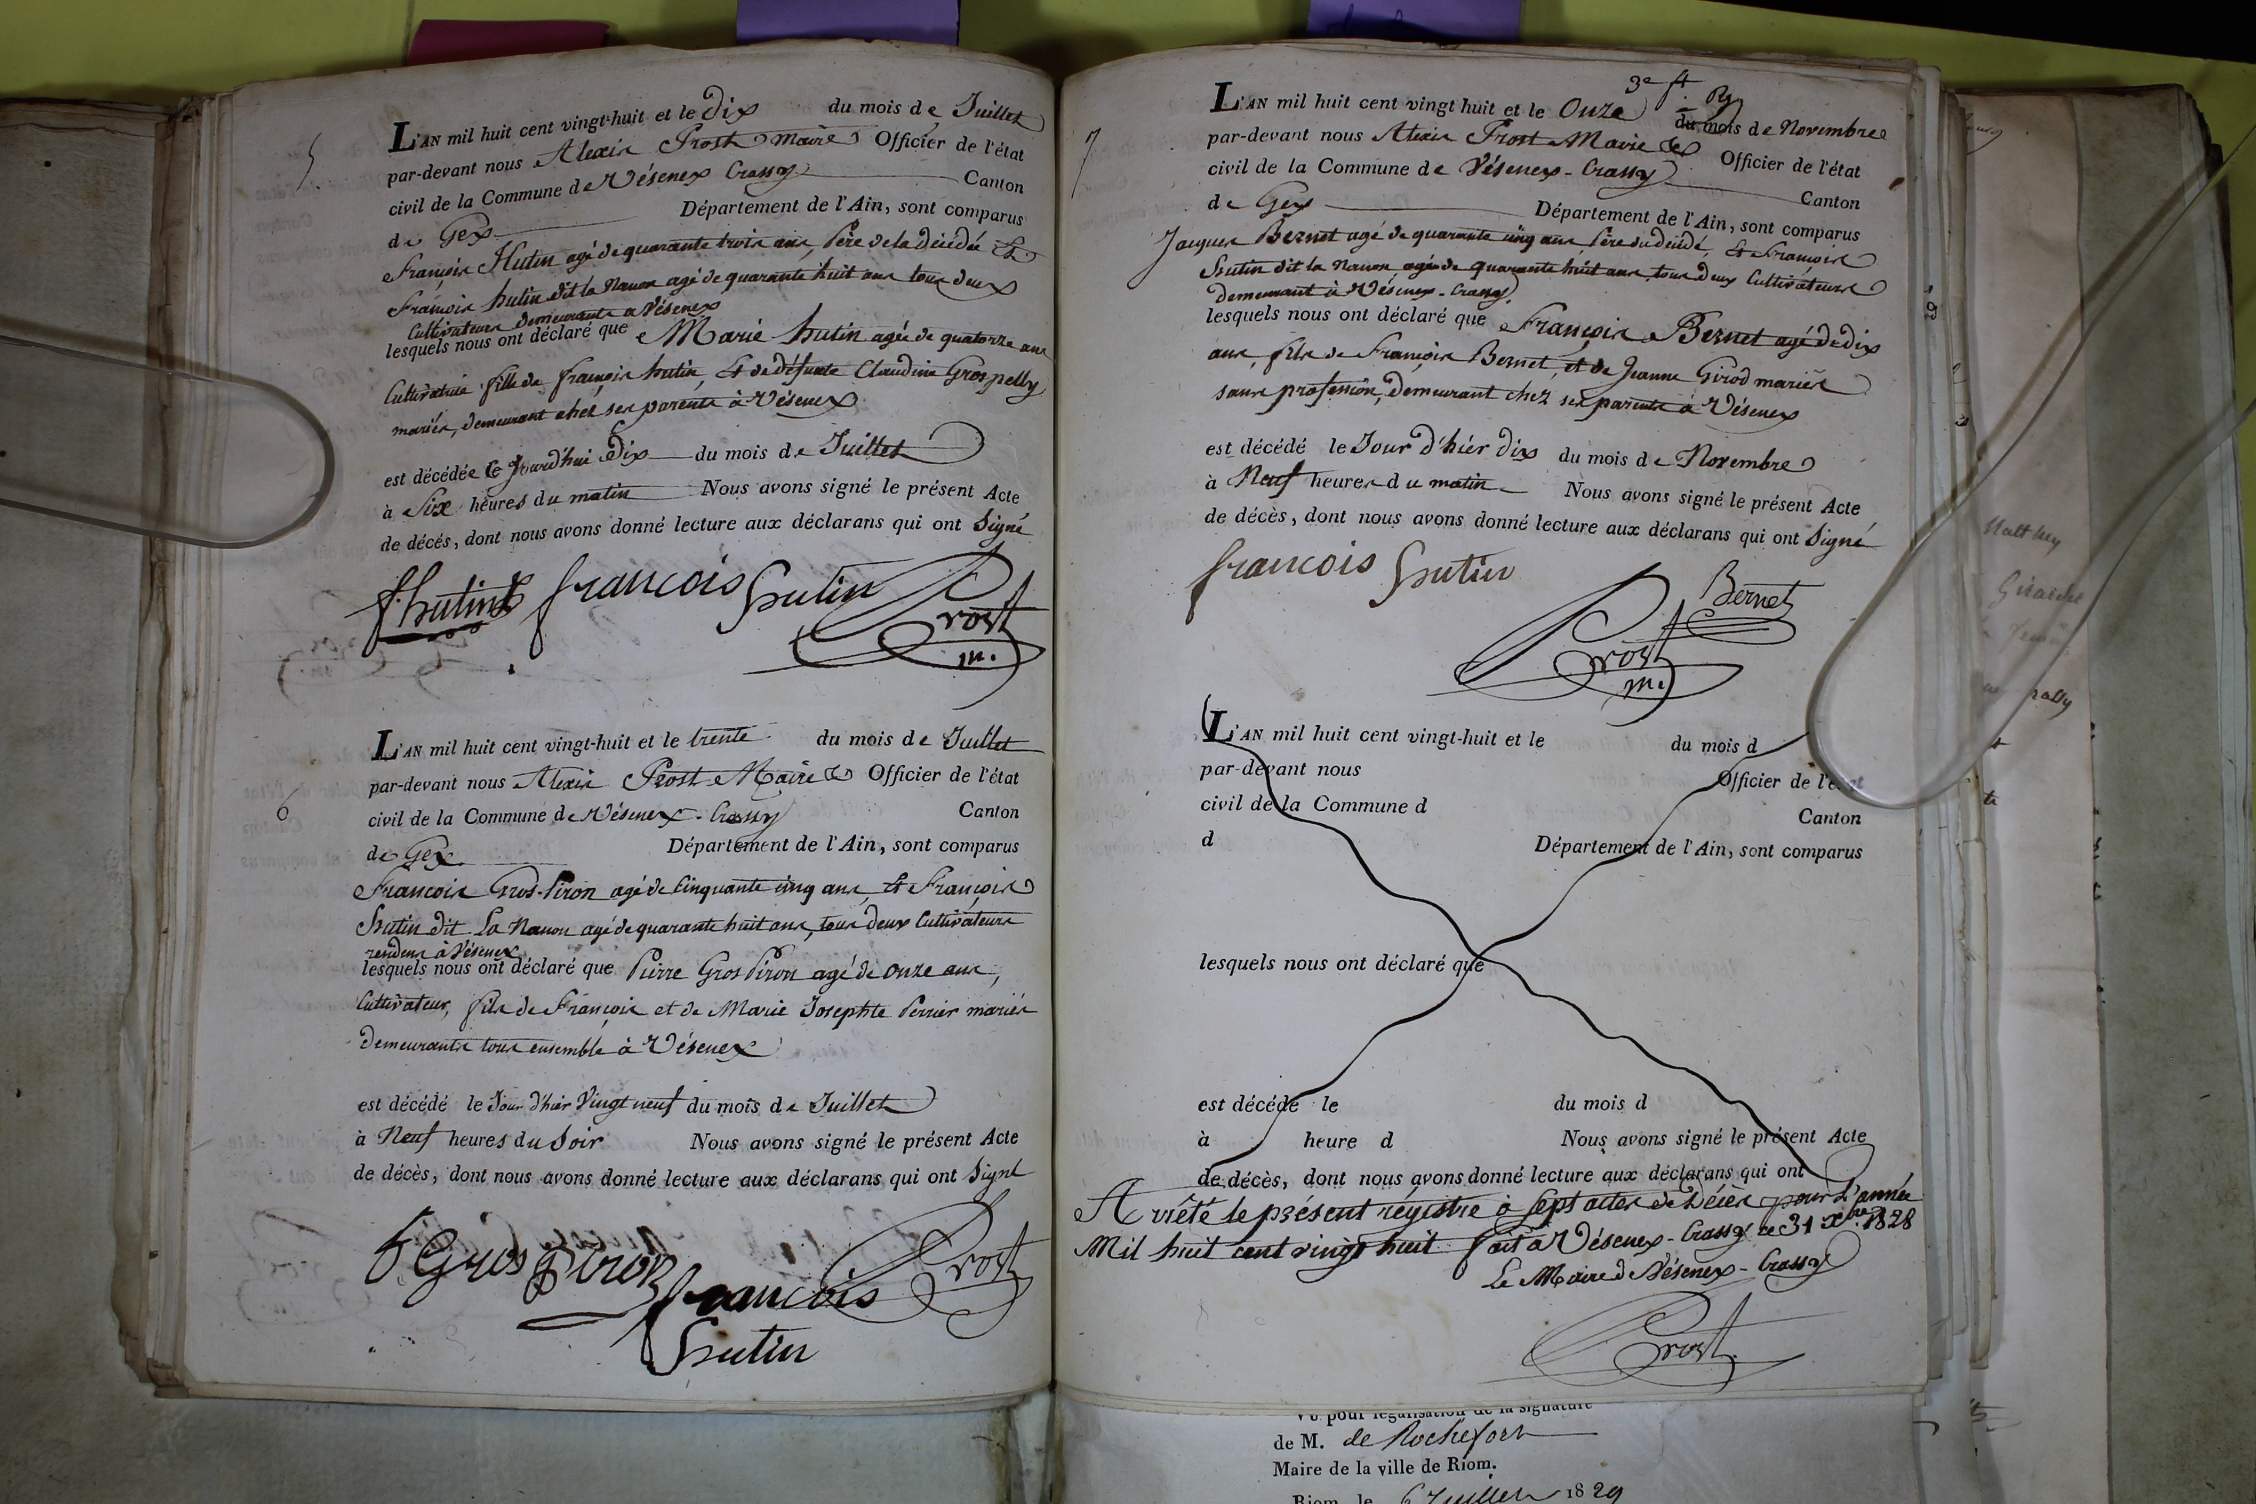 5.
L'AN mil huit cent vingt-huit et le dix du mois de Juillet
par-devant nous Alexis Prost Maire Officier de l'état
civil de la Commune de Vésenex Crassy Canton
de Gex Département de l'Ain, sont comparus
François Hutin agé de quarante trois ans, Père de la décédée et
François hutin dit la Nanon agé de quarante huit ans tous deux
Cultivateurs demeurants a Vésenex
lesquels nous ont déclaré que Marie hutin agée de quatorze ans
Cultivatrice fille de françois hutin, et de défunte Claudine Grospelly
mariés, demeurant chez ses parents à Vésenex
est décédée le Jourd'hui Dix du mois de Juillet
à Six heures du matin Nous avons signé le présent Acte
de décès, dont nous avons donné lecture aux déclarans qui ont Signé
f. hutin françois hutin Prost
m.
6
L'AN mil huit cent vingt-huit et le trente du mois de Juillet
par-devant nous Alexis Prost Maire Officier de l'état
civil de la Commune de Vésenex-Crassy Canton
de Gex Département de l'Ain, sont comparus
François Gros-Piron agé de Cinquante cinq ans, et François
hutin dit La Nanon agé de quarante huit ans, tous deux Cultivateurs
rendens à Vésenex
lesquels nous ont déclaré que Pierre Gros Piron agé de onze ans,
Cultivateur, fils de François et de Marie Josephte Perrier mariés
demeurants tous ensemble à Vésenex
est décédé le Jour d'hier Vingt neuf du mois de Juillet
à Neuf heures du Soir Nous avons signé le présent Acte
de décès, dont nous avons donné lecture aux déclarans qui ont Signé
f Gros Piron françois Prost
hutin
3e ft
7
L'AN mil huit cent vingt huit et le Onze du mois de Novembre
par-devant nous Alexis Prost Maire Officier de l'état
civil de la Commune de Vésenex-Crassy Canton
de Gex Département de l'Ain, sont comparus
Jacques Bernet agé de quarante cinq ans Père du décédé, et François
hutin dit la Nanon, agé de quarante huit ans, tous deux Cultivateurs
demeurant à Vésenex-Crassy,
lesquels nous ont déclaré que François Bernet agé de dix
ans, fils de François Bernet, et de Jeanne Girod mariés
sans profession, demeurant chez ses parents à Vésenex
est décédé le Jour d'hier dix du mois de Novembre
à Neuf heures du matin Nous avons signé le présent Acte
de décès, dont nous avons donné lecture aux déclarans qui ont Signé
françois hutin Bernet
Prost
m.
L'AN mil huit cent vingt-huit et le du mois d
par-devant nous Officier de l'état
civil de la Commune d Canton
d Département de l'Ain, sont comparus
lesquels nous ont déclaré que
est décédé le du mois d
à heure d Nous avons signé le présent Acte
de décès, dont nous avons donné lecture aux déclarans qui ont
Arrêté le présent régistre à Sept actes de Décès pour l'année
Mil huit cent vingt huit. fait à Vésenex-Crassy ce 31 Xbre 1828
Le Maire de Vésenex-Crassy
Prost
Vu pour légalisation de la signature
de M. de Rochefort
Maire de la ville de Riom.
Riom, le 6 Juillet 1829
Matthey